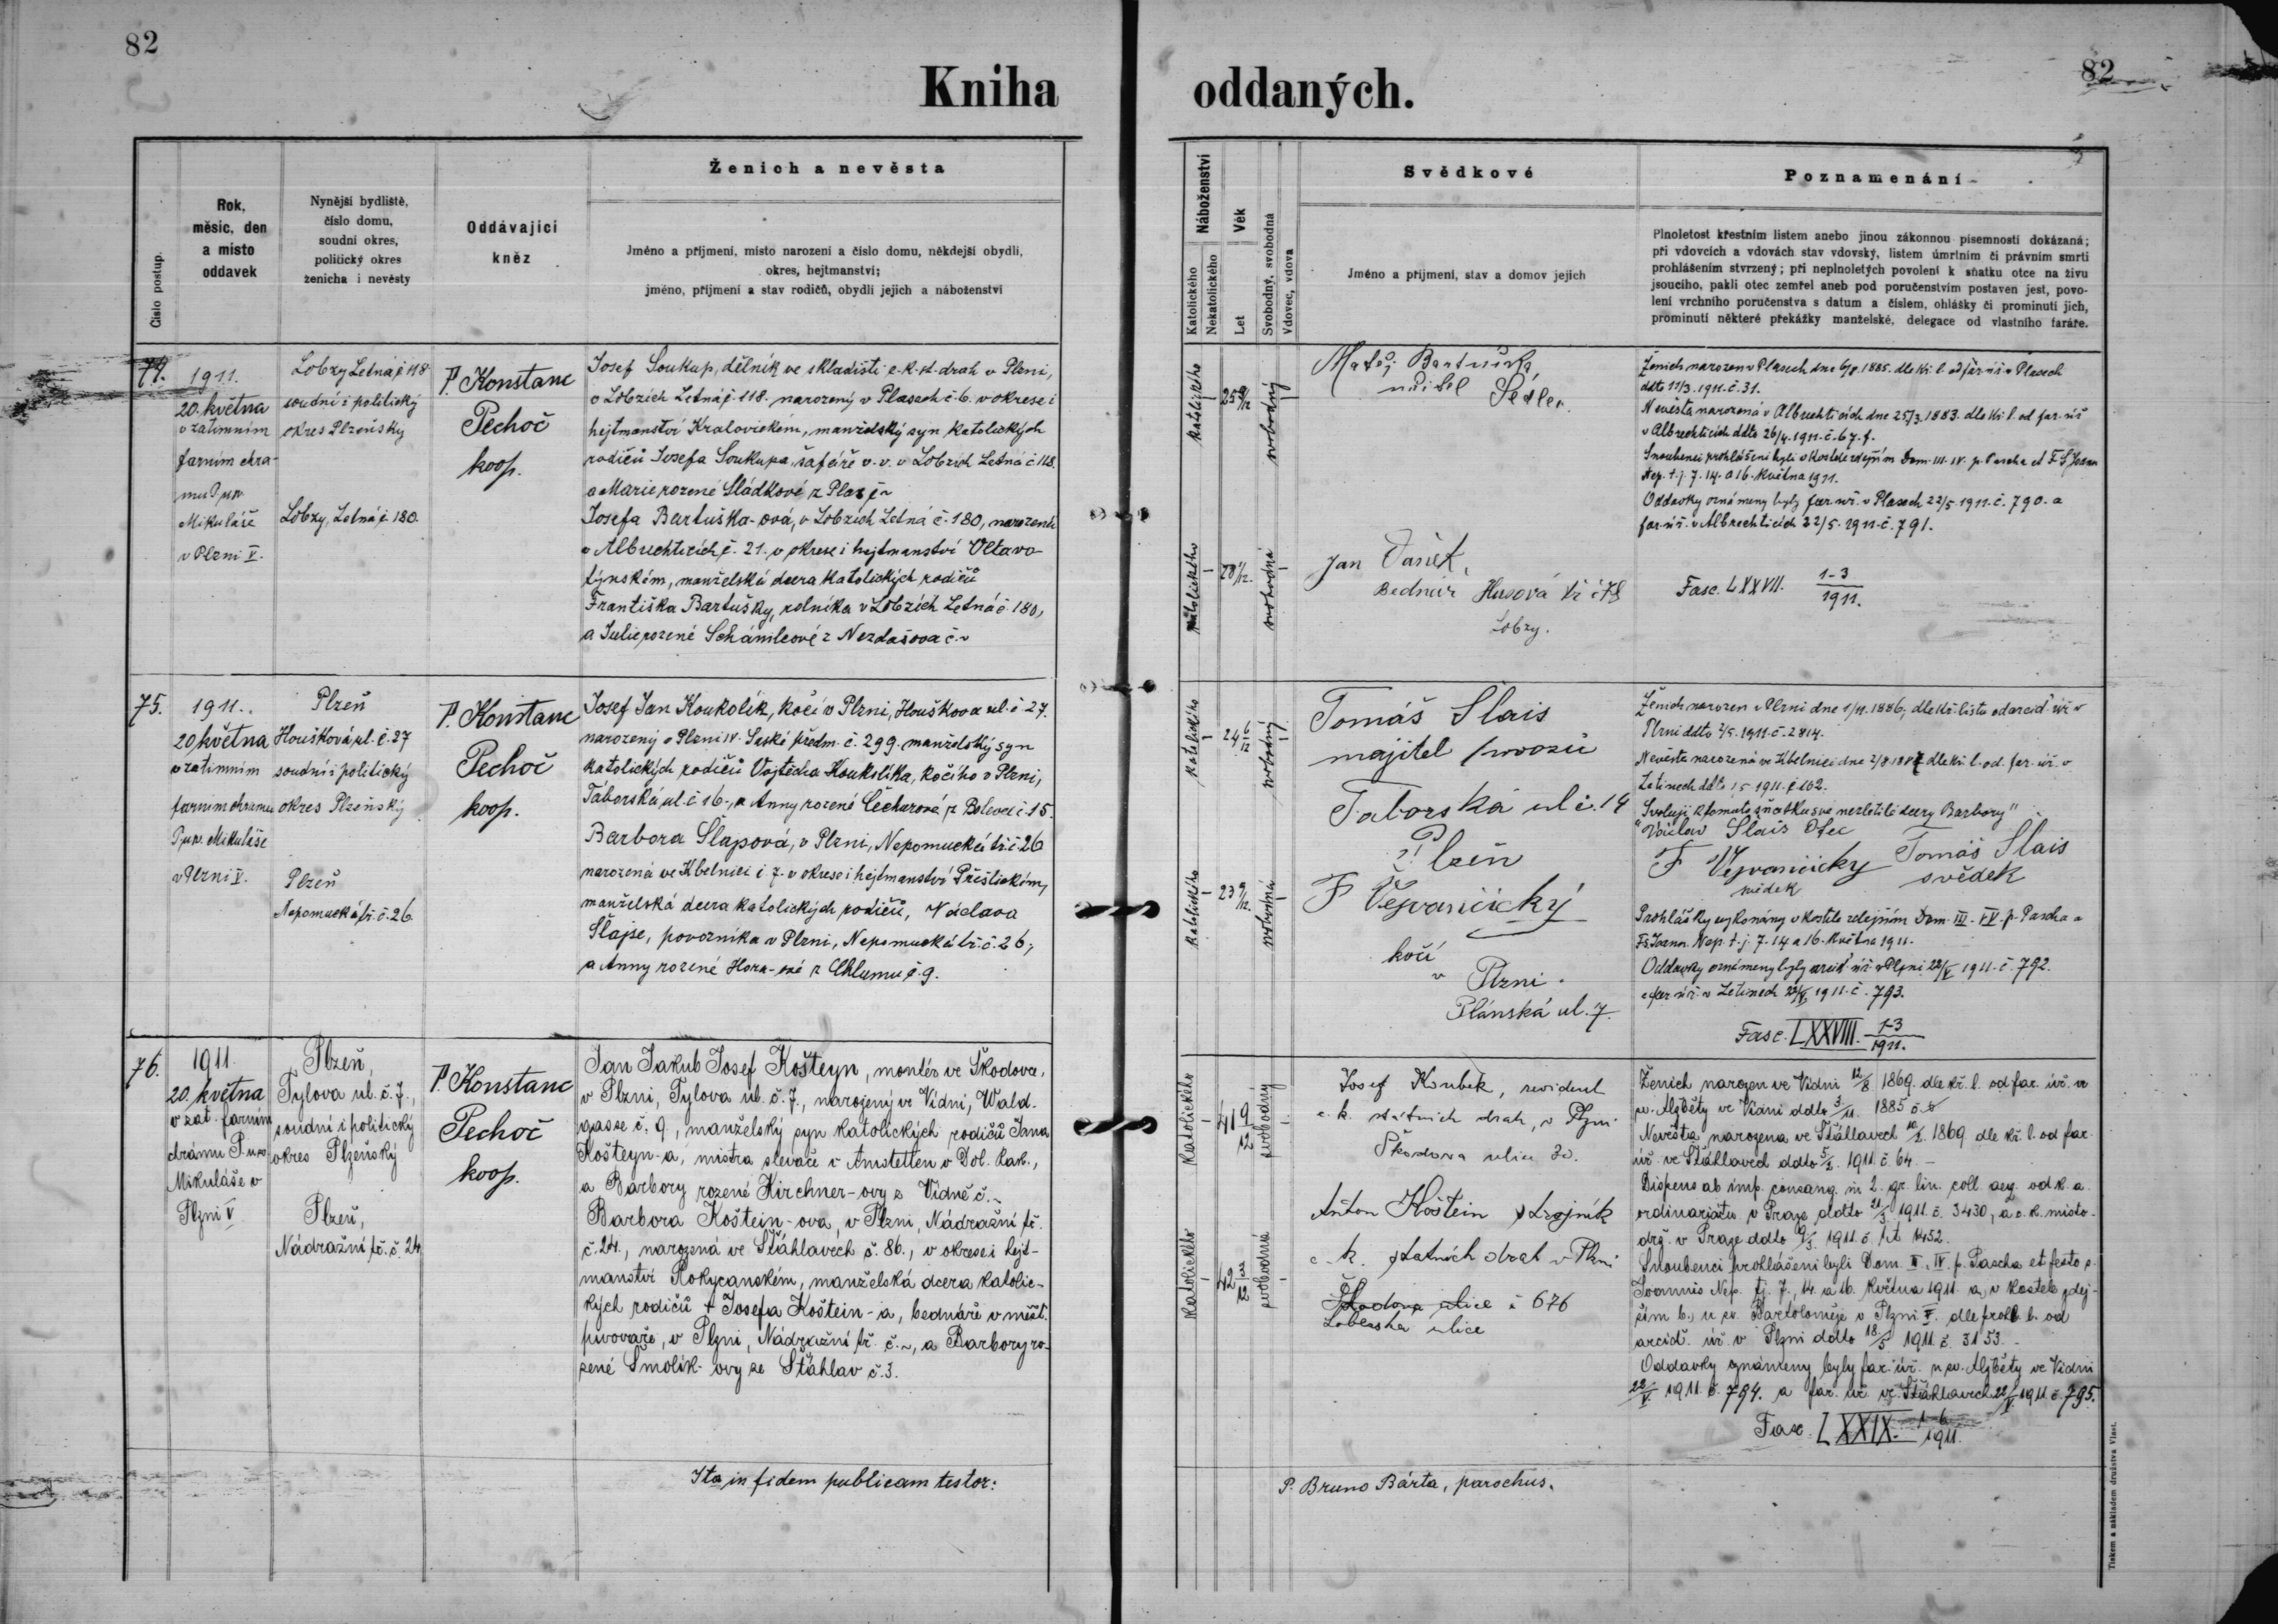 82
Kniha
Číslo postup.
Rok,
měsíc, den
a místo
oddavek
Nynější bydliště,
číslo domu,
soudní okres,
politický okres
ženicha i nevěsty
Oddávající
kněz
Ženich a nevěsta
Jméno a příjmení, místo narození a číslo domu, někdejší obydlí,
okres, hejtmanství;
jméno, příjmení a stav rodičů, obydlí jejich a náboženství
74.
1911.
20. května
v zatimním
farním chrá-
mu P.
Mikuláše
v Plzni V.
Lobzy Letná č. 118
soudní i politický
okres Plzeňský
Lobzy, Letná č. 180.
P. Konstanc
Pechoč
koop.
Josef Soukup, dělník ve skladišti c. k. st. drah v Plzni,
v Lobzích Letná č. 118. narozený v Plasech č. 6. v okrese i
hejtmanství Kralovickém, manželský syn katolických
rodičů Josefa Soukupa, šafáře v. v. v Lobzích Letná č. 118.
a Marie rozené Sládkové z Plas č. ~
Josefa Bartuška-ová, v Lobzích Letná č. 180, narozená
v Albrechticích č. 21. v okrese i hejtmanství Vltavo-
týnském, manželská dcera katolických rodičů
Františka Bartušky, rolníka v Lobzích Letná č. 180,
a Julie rozené Schámlcové z Nezdašova č. ~
75.
1911.
20. května
v zatimním
farním chrámu
P. Mikuláše
v Plzni V.
Plzeň
Houšková ul. č. 27
soudní i politický
okres Plzeňský
Plzeň
Nepomucká tř. č. 26
P. Konstanc
Pechoč
koop.
Josef Jan Koukolík, kočí v Plzni, Houškova ul. č. 27.
narozený v Plzni IV. Saské předm. č. 299. manželský syn
katolických rodičů Vojtěcha Koukolíka, kočího v Plzni,
Táborská ul. č. 16., a Anny rozené Čechurové z Bolevce č. 15.
Barbora Šlajsová, v Plzni, Nepomucká tř. č. 26
narozená ve Kbelnici č. 7. v okrese i hejtmanství Přeštickém,
manželská dcera katolických rodičů, Václava
Šlajse, povozníka v Plzni, Nepomucká tř. č. 26.,
a Anny rozené Hora-ové z Chlumu č. 9.
76.
1911.
20. května
v zat. farním
chrámu P.
Mikuláše v
Plzni V
Plzeň,
Tylova ul. č. 7.,
soudní i politický
okres Plzeňský
Plzeň,
Nádražní tř. č. 24
P. Konstanc
Pechoč
koop.
Jan Jakub Josef Košteyn, montér ve Škodova.
v Plzni, Tylova ul. č. 7., narozený ve Vídni, Wald-
gasse č. 9, manželský syn katolických rodičů Jana
Košteyn-a, mistra slevače v Amstetten v Dol. Rak.,
a Barbory rozené Kirchner-ovy z Vídně č. ~
Barbora Koštein-ova, v Plzni, Nádražní tř.
č. 24., narozená ve Šťáhlavech č. 86., v okrese i hejt-
manství Rokycanském, manželská dcera katolic-
kých rodičů † Josefa Koštein-a, bednáře v měšť.
pivovaře, v Plzni, Nádražní tř. č. ~, a Barbory ro-
zené Smolík-ovy ze Šťáhlav č. 3.
Ita in fidem publicam testor:
82
oddaných.
Náboženství
Katolického
Nekatolického
Věk
Let
Svobodný, svobodná
Vdovec, vdova
Svědkové
Jméno a příjmení, stav a domov jejich
Poznamenání
Plnoletost křestním listem anebo jinou zákonnou písemností dokázaná;
při vdovcích a vdovách stav vdovský, listem úmrtním či právním smrti
prohlášením stvrzený; při neplnoletých povolení k sňatku otce na živu
jsoucího, pakli otec zemřel aneb pod poručenstvím postaven jest, povo-
lení vrchního poručenstva s datum a číslem, ohlášky či prominutí jich,
prominutí některé překážky manželské, delegace od vlastního faráře.
katolického
svobodný
Matěj Bartuška,
učitel Sedlec.
katolického
28 1/12
svobodná
Jan Vaněk,
Bednář Husova tř. č. 78
Lobzy.
Ženich narozen v Plasech dne 6/8. 1885. dle kř. l. od far. úř. v Plasech
ddto 11/3. 1911. č. 31.
Nevěsta narozená v Albrechticích dne 25/3. 1883. dle kř. l. od far. úř.
v Albrechticích ddto 26/4. 1911. č. 67. f.
Snoubenci prohlášeni byli v kostele zdejším Dom. III. IV. p. Pascha et F. S. Joan
Nep. t. j. 7. 14. a 16. května 1911.
Oddavky oznámeny byly far. úř. v Plasech 22/5. 1911. č. 790. a
far. úř. v Albrechticích 22/5. 1911. č. 791.
Fasc. LXXVII. 1-3/1911.
katolického
24 6/12
svobodný
Tomáš Slais
majitel povozů
Taborská ul č. 14
Plzeň
katolického
23 9/12.
svobodná
F Vejvančický
kočí
v Plzni.
Plánská ul. 7.
Ženich narozen v Plzni dne 1/11. 1886, dle kř. listu od arcid. úř. v
Plzni ddto 2/5. 1911. č. 2814.
Nevěsta narozená ve Kbelnici dne 2/8 1887 dle kř. l. od. far. úř. v
Letinech ddto 1 5 1911. č. 162.
Svoluji k tomuto sňatku své nezletilé dcery Barbory"
"Václav Slais Otec
F Vejvančický Tomáš Slais
svědek svědek
Prohlášky vykonány v kostele zdejším Dom. III. - IV. p. Pascha a
Fs. Joann. Nep. t. j. 7. 14 a 16. května 1911.
Oddavky oznámeny byly arcid. úř. v Plzni 22/V 1911. č. 792.
a far. úř. v Letinech 22/V. 1911. č. 793.
Fasc. LXXVIII. 1-3/1911.
Katolického
41 9/12
svobodný
Josef Koubek, revident
c. k. státních drah, v Plzni
Škodova ulice 30.
Katolického
42
svobodná
Anton Koštein strojník
c. k. statních drah v Plzni
Škodova ulice č 676
Lobezská ulice
Ženich narozen ve Vídni 12/8 1869. dle kř. l. od far. úř. u
sv. Alžběty ve Vídni ddto 3/11. 1885 č.
Nevěsta narozena ve Šťáhlavech 1869. dle kř. l. od far.
úř. ve Šťáhlavech ddto 5/2. 1911. č. 64. -
Dispens ab imp. consang. in 2. gr. lin. coll. aeq. od k. a.
ordinariátu v Praze ddto 21/3. 1911. č. 3430, a c. k. místo-
drž. v Praze ddto 1911. č. 1452.
Snoubenci prohlášeni byli Dom. III., IV. p. Pascha et festo s.
Joannis Nep. tj. 7., 14. a 16. května 1911. a v kostele zdej-
ším b., u sv. Bartoloměje v Plzni V. dle prohl. l. od
arciď. úř. v Plzni ddto 18/5 1911. č. 3153. -
Oddavky oznámeny byly far. úř. u sv. Alžběty ve Vídni
22/V. 1911. č. 794. a far. úř. ve Šťáhlavech 22/V 1911. č. 795.
Fasc. LXXIX. 1-6/1911.
P. Bruno Bárta, parochus.
Tiskem a nákladem družstva Vlast.